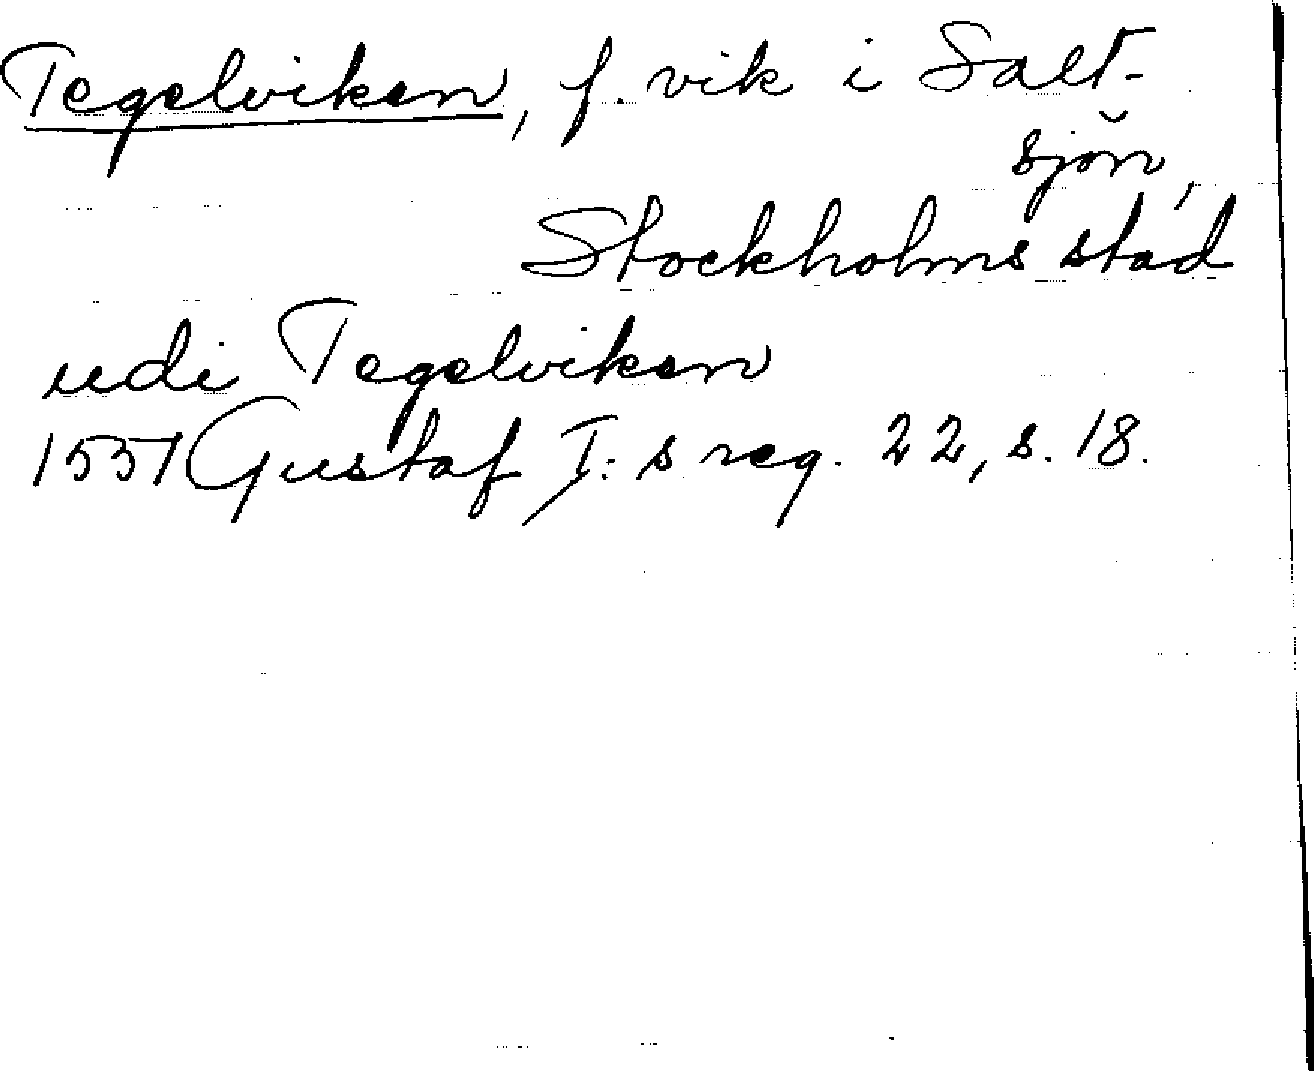 Tegelviken, f. vik i Salt-
sjön,
Stockholms stad
udi Tegelviken
1551 Gustaf I:s reg. 22, s. 18.